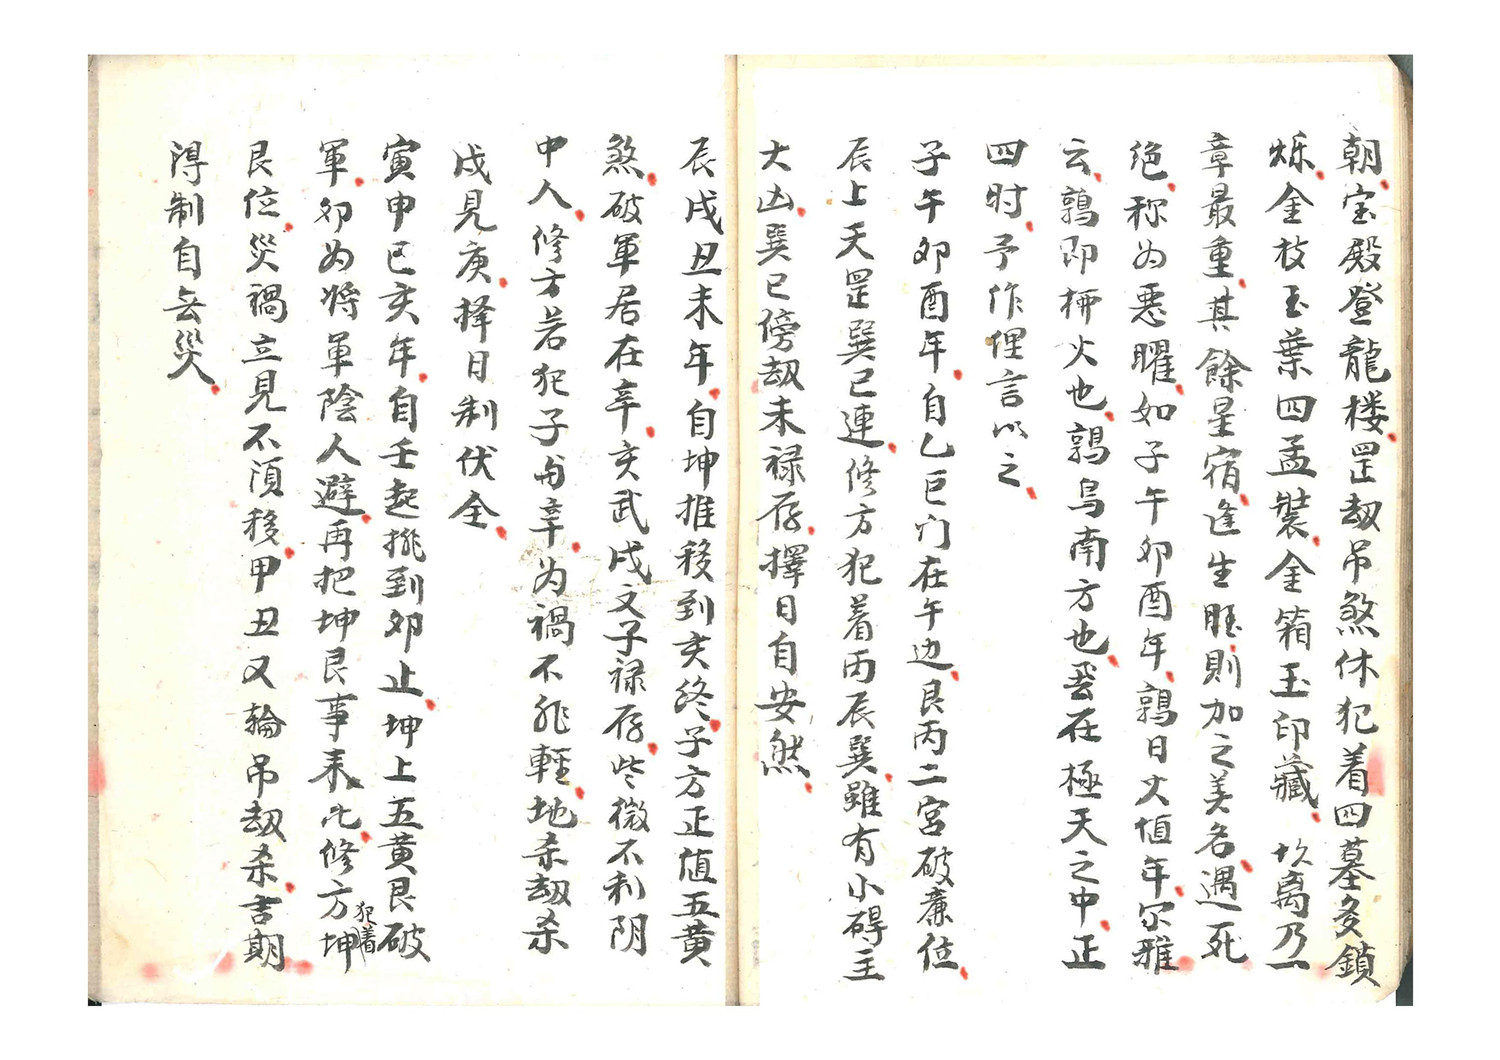 朝宝殿登龍楼罡刼吊煞休犯着四墓多鎖
烁金枝玉葉四孟裝金箱玉印藏坎离乃一
章最重其餘星宿逢生旺則加之美名遇死
绝称为悪曜如子午卯酉年鶉日火值年尔雅
云鶉即栁火也鶉鸟南方也在極天之中正
四时予作俚言以之
子午卯酉年自乙巨门在午边艮丙二宮破廉位
辰上天罡巽巳連修方犯着丙辰巽雖有小碍主
大凶巽巳傍刼未禄存擇日自安然
辰戌丑未年自坤推移到亥终子方正值五黄
煞破軍居在辛亥武戌文子禄存些微不利阴
中人修方若犯子与辛为禍不非輕地杀刼杀
戌見庚择日制伏全
寅申巳亥年自壬起挑到卯止坤上五黄艮破
軍卯为将軍陰人避再把坤艮事来比修方犯着坤
艮位災禍立見不須移甲丑又輪吊刼杀吉期
得制自无災